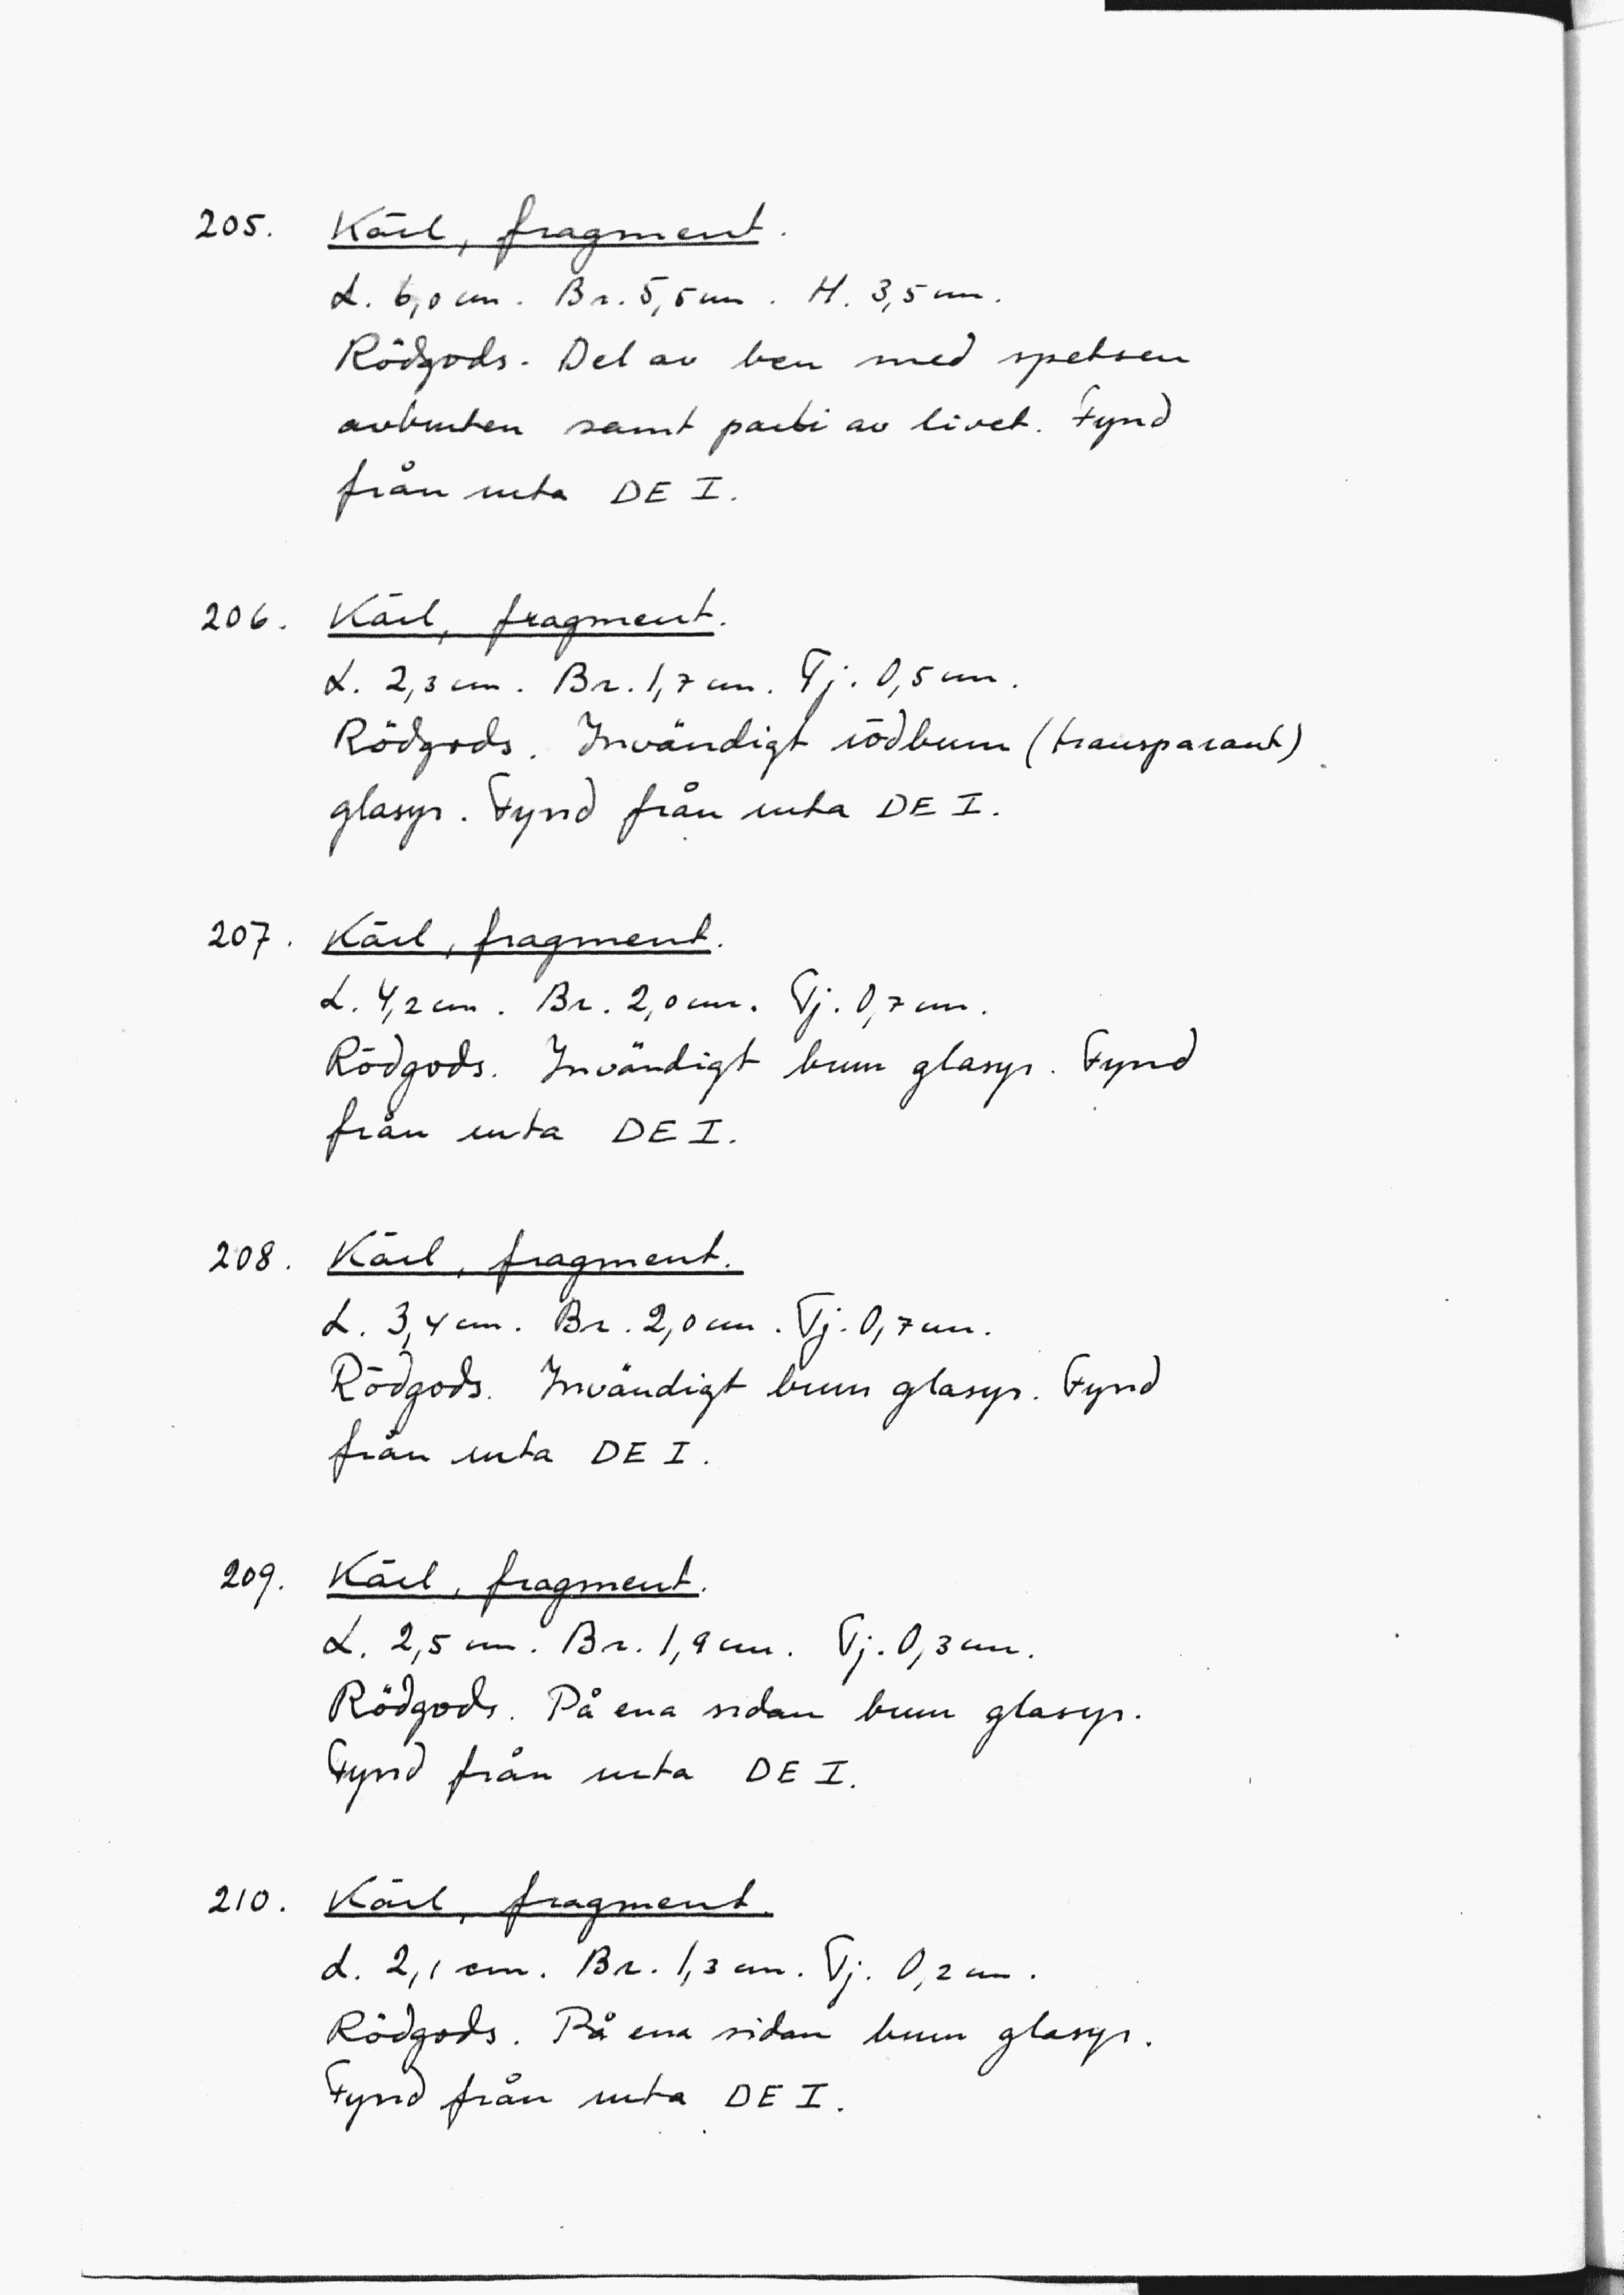 205. Kärl, fragment.
L. 6,0 cm. Br. 5,5 cm. H. 3,5 cm.
Rödgods. Del av ben med spetsen
avbruten samt parti av livet. Fynd
från ruta DE I.
206. Kärl, fragment.
L. 2,3 cm. Br. 1,7 cm. Tj. 0,5 cm.
Rödgods. Invändigt rödbrun (transparant)
glasyr. Fynd från ruta DE I.
207. Kärl, fragment.
L. 4,2 cm. Br. 2,0 cm. Tj. 0,7 cm.
Rödgods. Invändigt brun glasyr. Fynd
från ruta DE I.
208. Kärl, fragment.
L. 3,4 cm. Br. 2,0 cm. Tj. 0,7 cm.
Rödgods. Invändigt brun glasyr. Fynd
från ruta DE I.
209. Kärl, fragment.
L. 2,5 cm. Br. 1,9 cm. Tj. 0,3 cm.
Rödgods. På ena sidan brun glasyr.
Fynd från ruta DE I.
210. Kärl, fragment.
L. 2,1 cm. Br. 1,3 cm. Tj. 0,2 cm.
Rödgods. På ena sidan brun glasyr.
Fynd från ruta DE I.